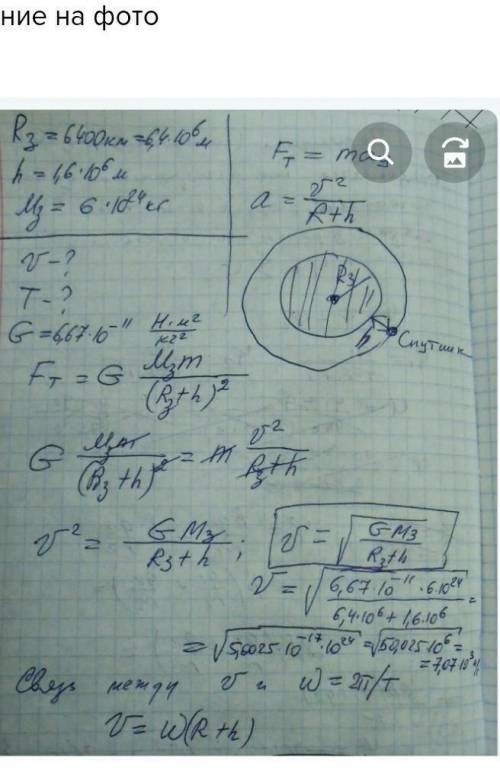 ние на фото
Rз = 6400км = 6,4·10⁶м
h = 1,6·10⁶м
Mз = 6·10²⁴кг
V-?
T-?
G = 6,67·10⁻¹¹ Н·м²/кг²
Fт = G Mзm/(Rз+h)²
Fт = ma
a = v²/(R+h)
Rз
h
Спутник
G Mзm/(Rз+h)² = m v²/(Rз+h)
v² = GMз/(Rз+h); v = √(GMз/(Rз+h))
V = √(6,67·10⁻¹¹·6·10²⁴/(6,4·10⁶+1,6·10⁶)) =
= √(5,0025·10⁻¹⁷·10²⁴) = √(50,025·10⁶) =
= 7,07·10³
Связь между v и ω = 2π/T
V = ω(R+h)